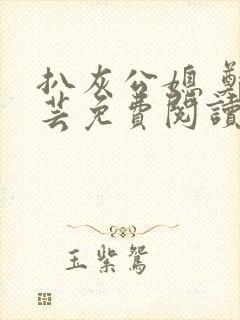 扒灰公媳 鄭
芸免費閱讀
玉紫鴛